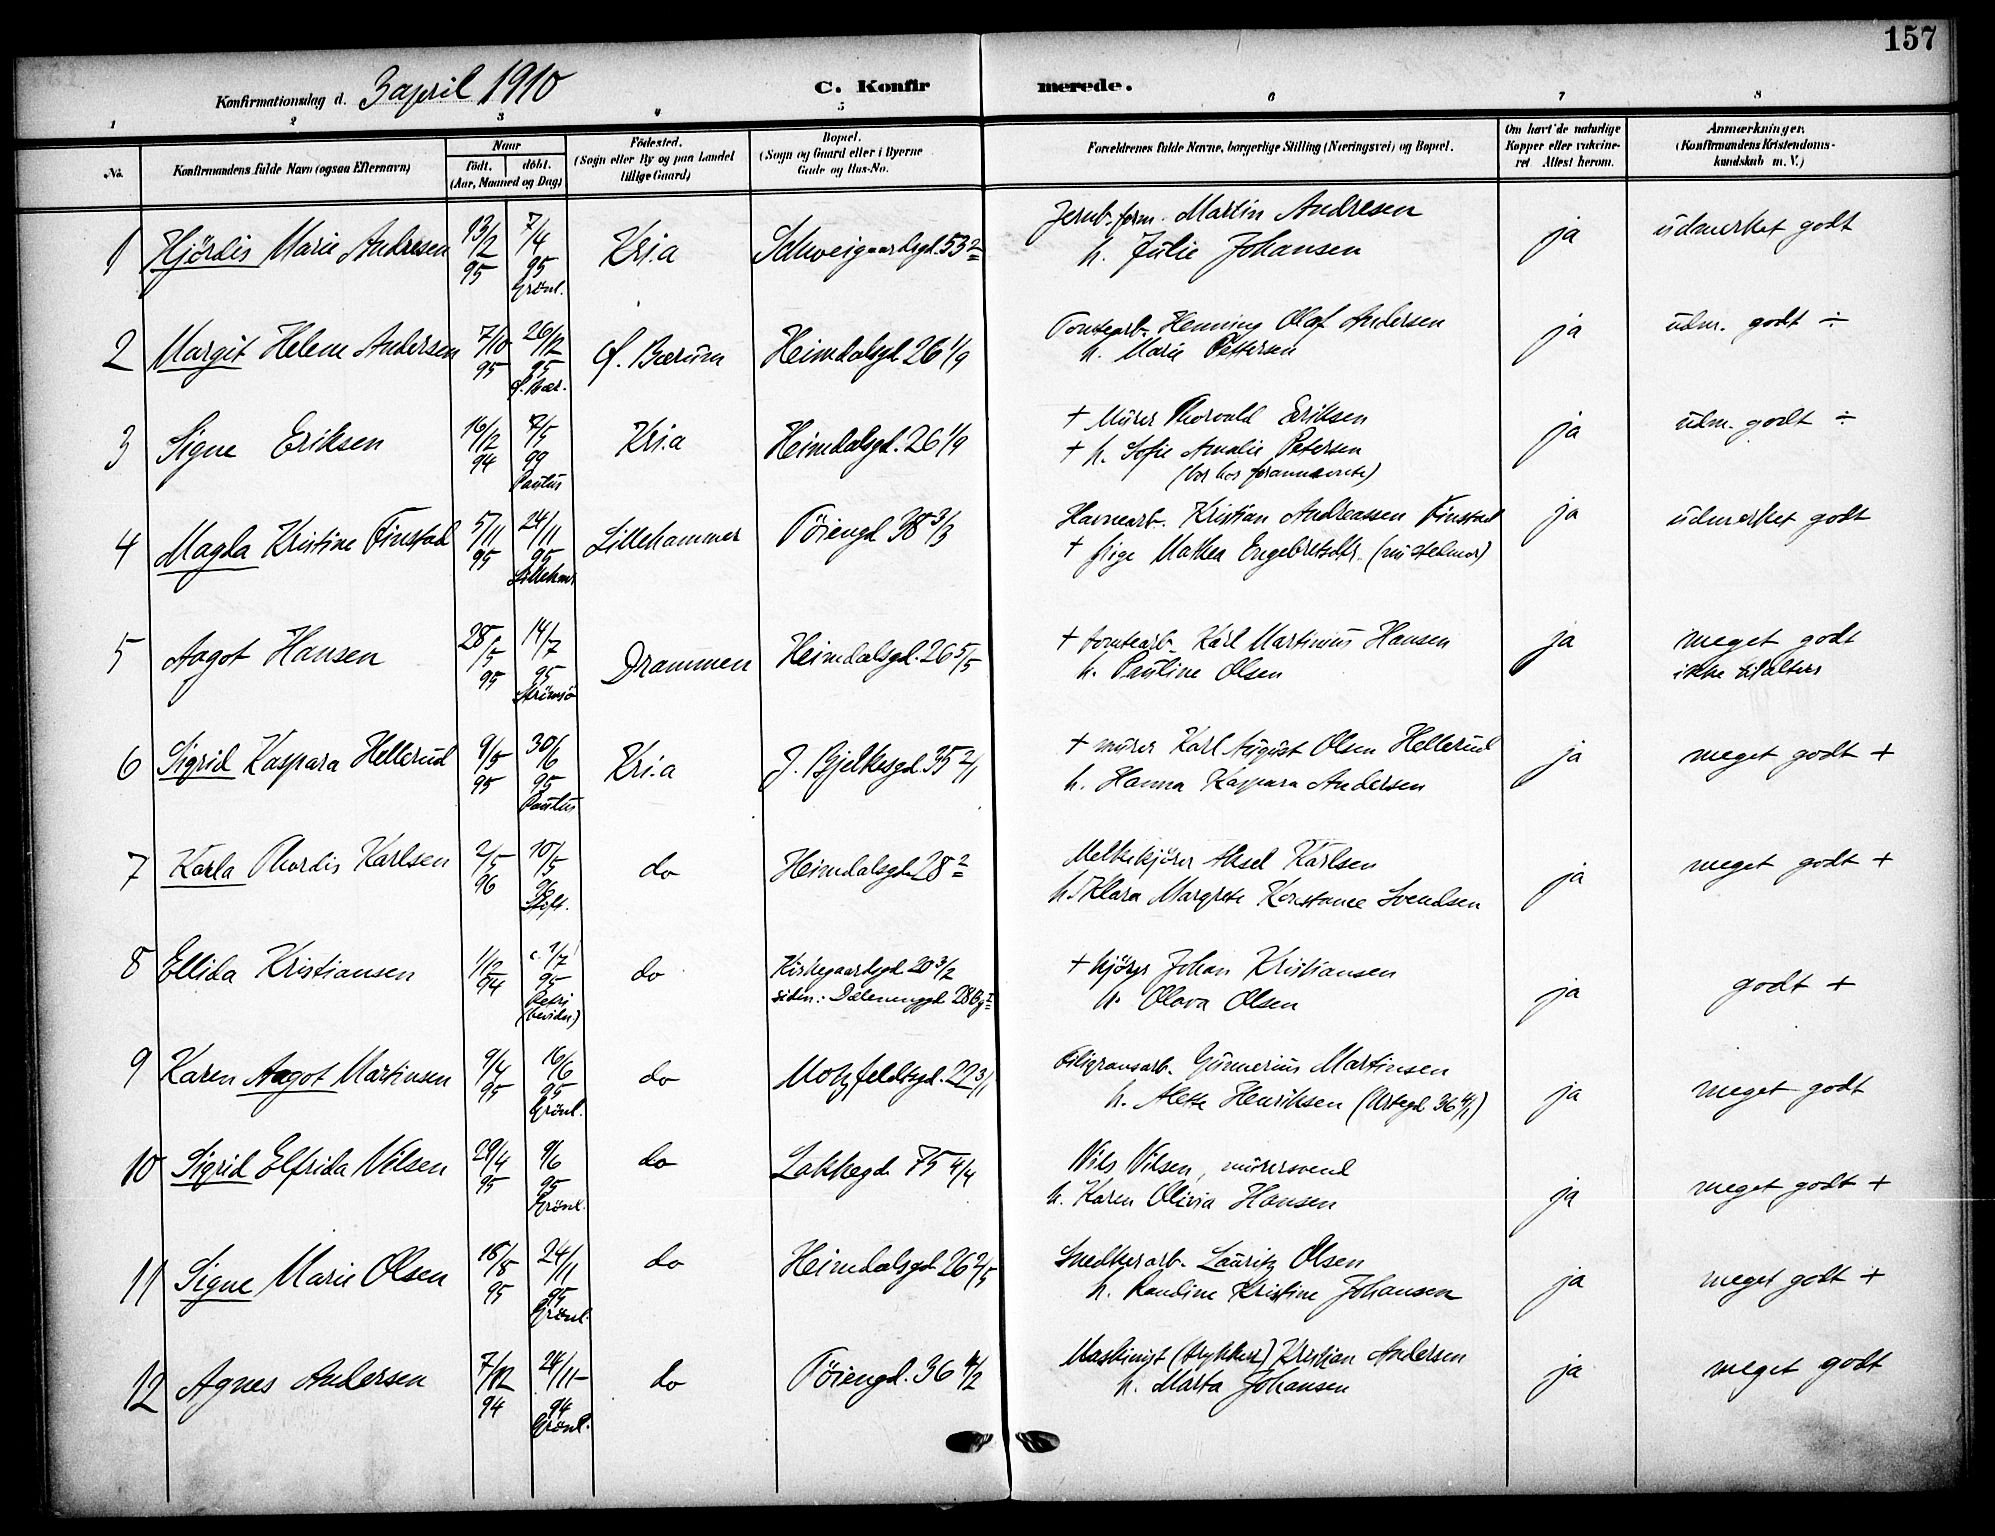 157
Konfirmationsdag d. 3 april 1910
C. Konfirmerede.
1 2 3 4 5 6 7 8
No.
Konfirmandens fulde Navn (ogsaa Efternavn)
Naar
født. døbt.
(Aar, Maaned og Dag)
Fødested.
(Sogn eller By og paa Landet
tillige Gaard)
Bopæl.
(Sogn og Gaard eller i Byerne
Gade og Hus-No.
Forældrenes fulde Navne, borgerlige Stilling (Næringsvei) og Bopæl.
Om havt de naturlige
Kopper eller vakcine-
ret Attest herom.
Anmærkninger.
(Konfirmandens Kristendoms-
kundskab m. V.)
1 Hjördis Marie Andresen 13/2 95 7/4 95 Grönl. Kr.i.a Schweigaardsgd. 53 2
Jernb. form. Martin Andresen
h. Julie Johansen
ja udmerket godt
2 Margit Helene Andersen 7/10 95 26/12 95 Ø. Bær. Ø. Bærum Heimdalsgd 26 1/9
Tomtearb. Henning Olaf Andersen
h. Marie Pettersen
ja udm. godt ÷
3 Signe Eriksen 16/12 94 99 Paulus Kr.i.a Heimdalsgd. 26 1/9
+ Murer Thorvald Eriksen
+ h. Sofie Amalie Petersen
(bor hos forannævnte)
ja udm. godt ÷
4 Magda Kristine Finstad 5/11 95 24/11 95 Lilleham. Lillehammer Töiengd 38 3/3
Havnearb. Kristian Andreassen Finstad
+ pige Mathea Engebretsdtr. (nu stefmor)
ja udmerket godt
5 Aagot Hansen 28/5 95 14/7 95 Strömsö Drammen Heimdalsgd. 26 5/5
+ tomtearb. Karl Martinus Hansen
h. Pauline Olsen
ja meget godt
ikke tilalters
6 Sigrid Kaspara Hellerud 9/5 95 30/6 95 Paulus Kr.i.a J. Bjelkesgd. 35 2/1
+ murer Karl August Olsen Hellerud
h. Hanna Kaspara Andersen
ja meget godt +
7 Karla Thordis Karlsen 2/5 96 10/5 96 Stift. do Heimdalsgd 28 2
Melkekjörer Aksel Karlsen
h. Klara Margrete Konstance Svendsen
ja meget godt +
8 Ellida Kristiansen 1/12 94 c. 1/7 95 Petri do Kirkegaardsgd 20 3/2
siden: Dælenenggd 28
+ kjörer Johan Kristiansen
h. Olava Olsen
ja godt +
9 Karen Aagot Martinsen 9/4 95 16/6 95 Grönl. do Motzfeldtsgd. 22 3/1
Filigransarb. Gunnerius Martinsen
h. Alette Henriksen (Urtegd 36 4/1)
ja meget godt
10 Sigrid Elfrida Nilsen 29/4 95 9/6 95 Grönl. do Lakkegd. 75 4/4
Nils Nilsen, murersvend
h. Karen Olivia Hansen
ja meget godt +
11 Signe Marie Olsen 18/8 95 24/11 95 Grönl. do Heimdalsgd 26 2/5
Snedkerarb. Lauritz Olsen
h. Randine Kristine Johansen
ja meget godt +
12 Agnes Andersen 7/12 94 24/11 94 Grönl. do Töiengd. 36 4/2
Maskinist (trykkeri) Kristian Andersen
h. Marta Johansen
ja meget godt